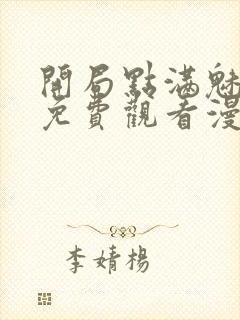 開局點滿魅
免費觀看漫
李婧楊